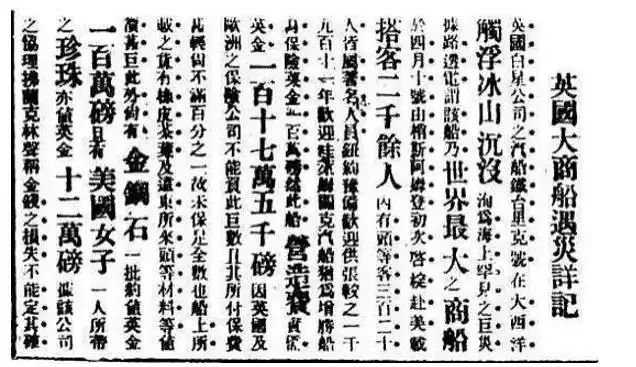 英國大商船遇災詳記
英國白星公司之汽船鐵台里克號在大西洋
觸浮冰山沉沒洵爲海上罕見之巨災
據路透電謂該船乃世界最大之商船
於四月十號由梢斯阿姆登初次啓椗赴美載
搭客二千餘人內有頭等客三百二十
人皆屬著名人員紐約豫備歡迎供張較之一千
九百十一年歡迎克汽船猶爲增勝船
身保險英金一百萬磅然此船營造費實值
英金一百十七萬五千磅因英國及
歐洲之保險公司不能負此巨數且其所付保費
甚輕尚不滿百分之一故未保足全數也船上所
載之貨有橡皮茶葉及遠東所來頭等材料等值
價甚巨此外尚有金鋼石一批約值英金
一百萬磅且有美國女子一人所帶
之珍珠亦值英金十二萬磅據該公司
之協理拂蘭克林聲稱金錢之損失不能定其確